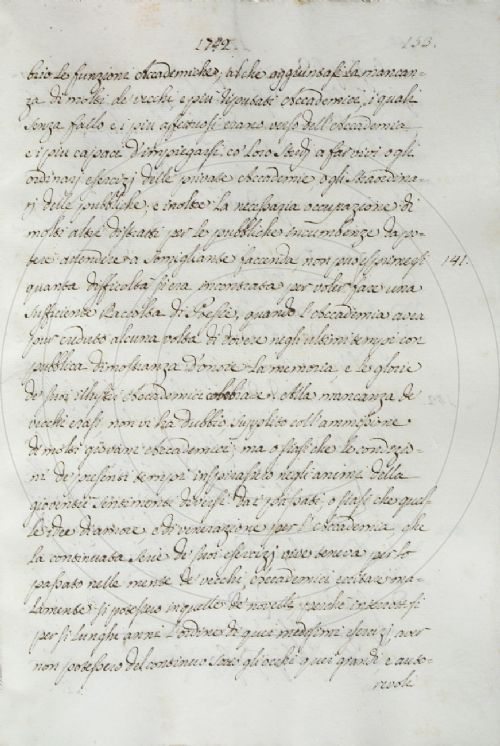 1742. 153.
brio le funzione Accademiche; al che aggiuntasi la mancan-
za di molti de' vecchi, e più riputati Accademici, i quali
senza fallo e i più affettuosi erano verso dell'Accademia
e i più capaci d'impiegarsi co' loro studj a far vivi o gli
ordinarj esercizj delle private Accademie o gli straordina-
rj delle pubbliche, e inoltre la necessaria occupazione di
molti altri distratti per le pubbliche incumbenze da po-
tere attendere a somigliante faccenda, non può esprimersi 141.
quanta difficoltà si era incontrata per voler fare una
sufficiente Raccolta di Poesie, quando l'Accademia avea
pur creduto alcuna volta di dovere negli ultimi tempi con
pubblica dimostranza d'onore la memoria, e le glorie
de' suoi illustri Accademici celebrare. Alla mancanza de'
vecchi erasi non v'ha dubbio supplito coll'ammissione
di molti giovani Accademici; ma o fosse che le condizio-
ni de' presenti tempi inspirassero negli animi della
gioventù sentimenti diversi dai passati, o fosse che quel-
le idee di amore, e di venerazione per l'Accademia, che
la continuata serie de' suoi esercizj vive teneva per lo
passato nelle mente de' vecchi Accademici, eccitare ma-
lamente si potessero in quelle de' novelli, perchè interrottosi
per sì lunghi anni l'ordine di quei medesimi esercizj, aver
non potessero del continuo sotto gli occhi quei grandi e auto-
revoli